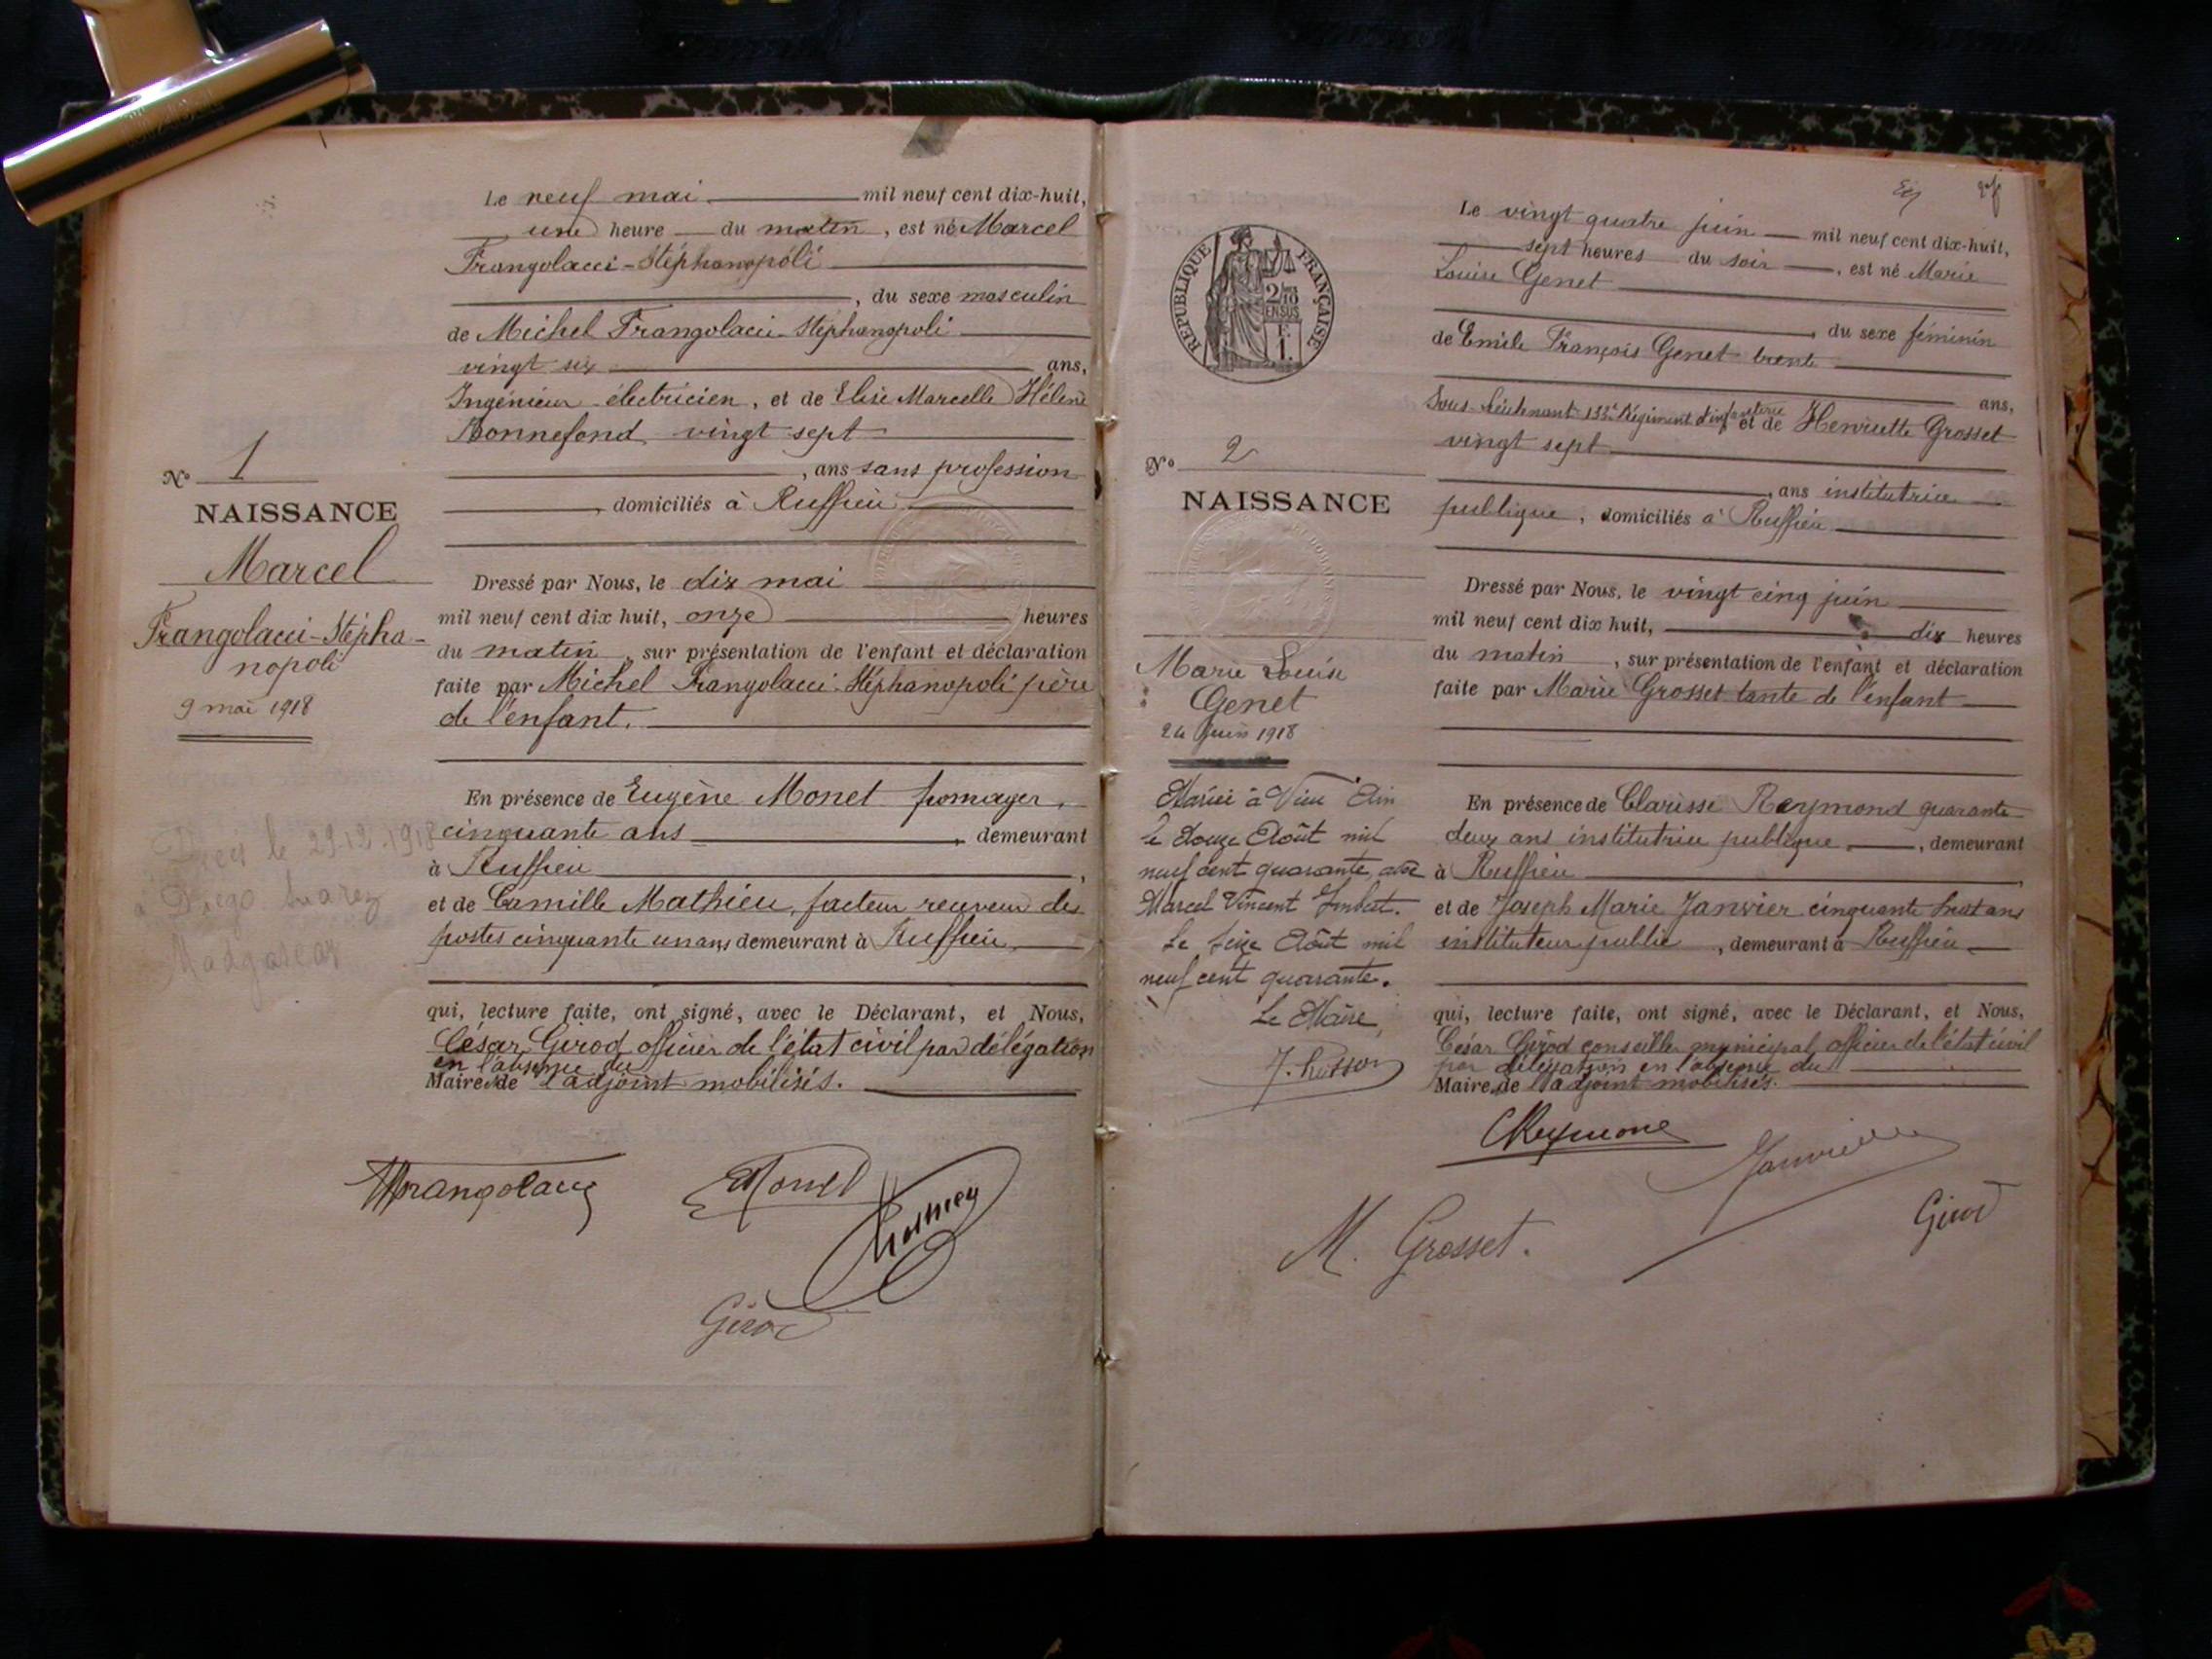 Le neuf mai mil neuf cent dix-huit,
une heure du matin, est né Marcel
Frangolacci-Stéphanopoli
, du sexe masculin
de Michel Frangolacci-Stéphanopoli
vingt six ans,
Ingénieur électricien, et de Elise Marcelle Hélène
Bonnefond vingt sept
, ans sans profession
, domiciliés à Ruffieu
Nº 1
NAISSANCE
Marcel
Frangolacci-Stépha-
nopoli
9 mai 1918
Dressé par Nous, le dix mai
mil neuf cent dix huit, onze heures
du matin, sur présentation de l'enfant et déclaration
faite par Michel Frangolacci-Stéphanopoli père
de l'enfant.
En présence de Eugène Monet fromager,
cinquante ans, demeurant
à Ruffieu,
et de Camille Mathieu, facteur receveur des
postes cinquante un ans demeurant à Ruffieu
le 29.12.1918
à Diego Suarez
Madagascar
qui, lecture faite, ont signé, avec le Déclarant, et Nous,
César Girod officier de l'état civil par délégation
en l'absence du
Maire de l'adjoint mobilisés.
Frangolacci
Monet
Girod
Le vingt quatre juin mil neuf cent dix-huit,
sept heures du soir, est né Marie
Louise Genet
, du sexe féminin
de Emile François Genet trente
ans,
Sous-Lieutenant 133e Régiment d'infanterie et de Henriette Grosset
vingt sept
, ans institutrice
publique, domiciliés à Ruffieu
REPUBLIQUE FRANÇAISE
2/10
EN SUS
F.
1.
Nº 2
NAISSANCE
Marie Louise
Genet
24 Juin 1918
Dressé par Nous, le vingt cinq juin
mil neuf cent dix huit, dix heures
du matin, sur présentation de l'enfant et déclaration
faite par Marie Grosset tante de l'enfant
En présence de Clarisse Reymond quarante
deux ans institutrice publique, demeurant
à Ruffieu
et de Joseph Marie Janvier cinquante huit ans
instituteur public, demeurant à Ruffieu
Mariée à Vieu Ain
le douze Août mil
neuf cent quarante, avec
Marcel Vincent Imbert.
Le seize Août mil
neuf cent quarante.
Le Maire,
qui, lecture faite, ont signé, avec le Déclarant, et Nous,
César Girod conseiller municipal officier de l'état civil
par délégation en l'absence du
Maire, de l'adjoint mobilisés.
CReymond
Janvier
M. Grosset.
Girod